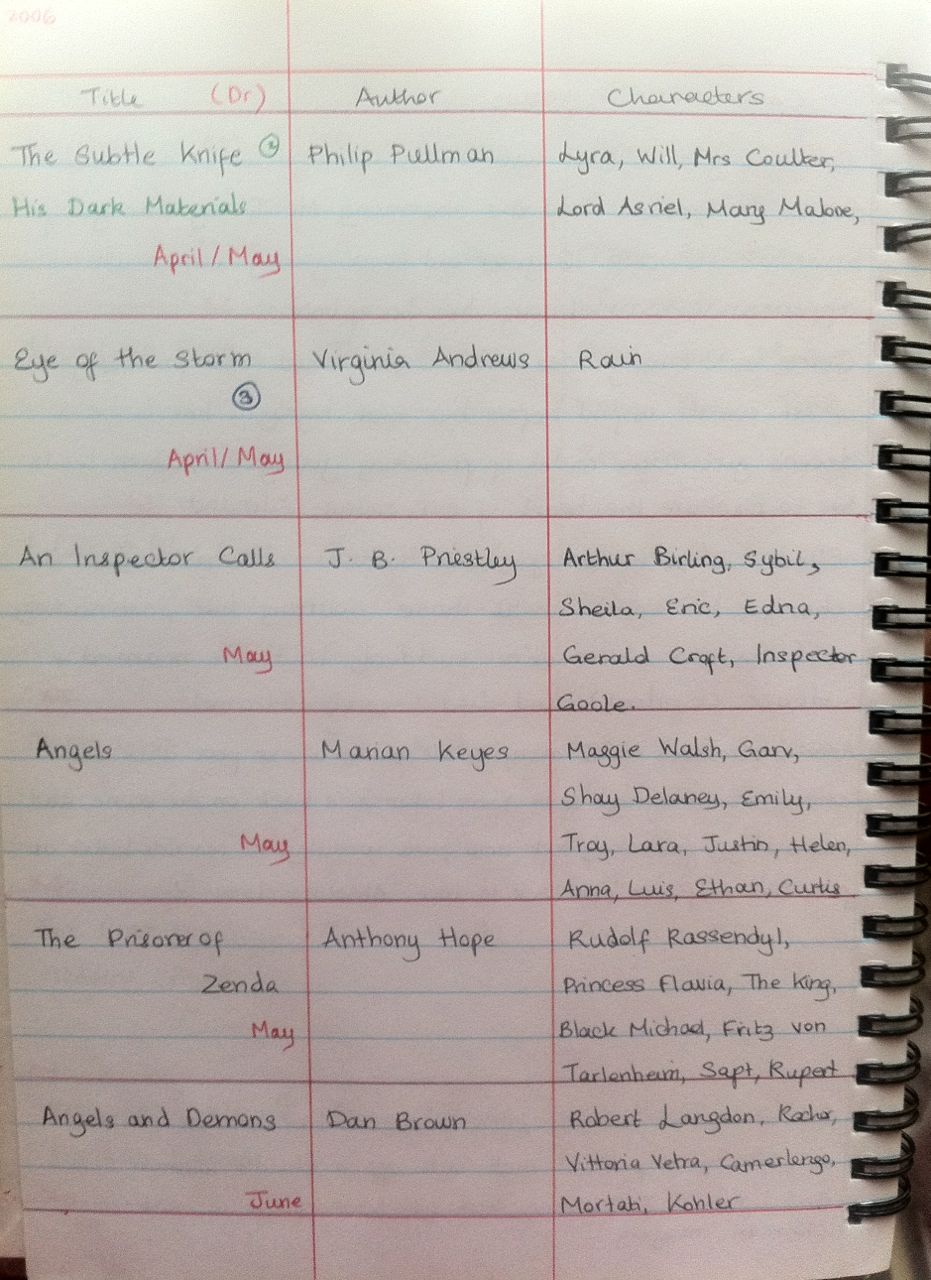 2006
Title (Dr) Author Characters
The Subtle Knife ② Philip Pullman Lyra, Will, Mrs Coulter,
His Dark Materials Lord Asriel, Mary Malone,
April / May
Eye of the Storm Virginia Andrews Rain
③
April / May
An Inspector Calls J. B. Priestley Arthur Birling, Sybil,
Sheila, Eric, Edna,
May Gerald Croft, Inspector
Goole.
Angels Marian Keyes Maggie Walsh, Garv,
Shay Delaney, Emily,
May Troy, Lara, Justin, Helen,
Anna, Luis, Ethan, Curtis
The Prisoner of Anthony Hope Rudolf Rassendyl,
Zenda Princess Flavia, The King,
May Black Michael, Fritz von
Tarlenheim, Sapt, Rupert
Angels and Demons Dan Brown Robert Langdon,
Vittoria Vetra, Camerlengo,
June Mortati, Kohler